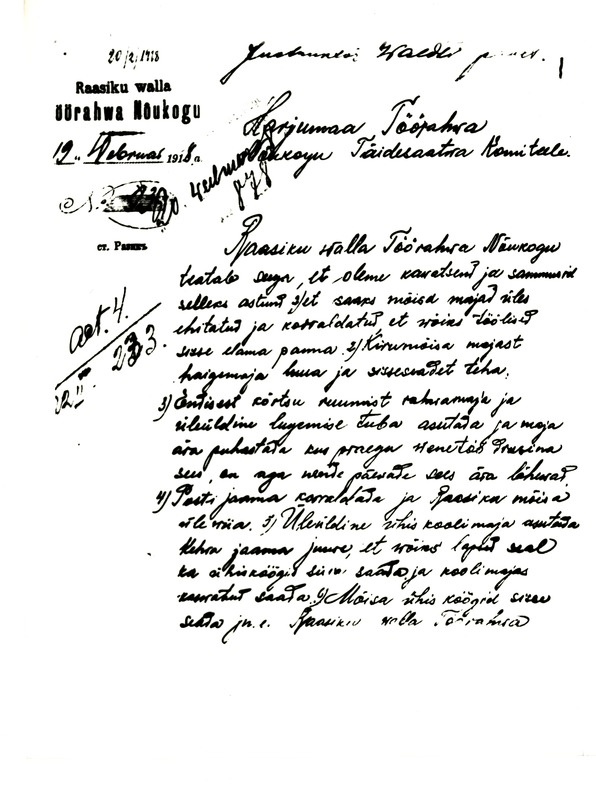 20/2/1918
Raasiku walla
öörahwa Nõukogu
19. Webruar 1918 a.
ст. Разикъ
Harjumaa Töörahwa
Nõukogu Täidesaatwa Komiteele.
Raasiku walla Töörahwa Nõukogu
teatab seega, et oleme kawatsend ja sammusid
selleks astund 1) et saaks mõisa majad üles
ehitatud ja korraldatud et wõiks töölised
sisse elama panna. 2) Kirumõisa majast
haigemaja luua ja sisseseadet teha,
3) Endisest kõrtsu ruumist rahwamaja ja
üleüldine lugemise tuba asutada ja maja
ära puhastada kus praegu
sees, on aga nende päewade sees ära lähewad
4) Posti jaama korraldada ja Raasiku mõisa
üle wiia. 5) Üleüldine ühis koolimaja asutada
Kehra jaama juure, et wõiks lapsed seal
ka ühisköögid saada ja koolimajas
kaswatud saada. Mõisa ühis köögid sisse
seada j.n.e. Raasiku walla Töörahwa
act. 4.
233.